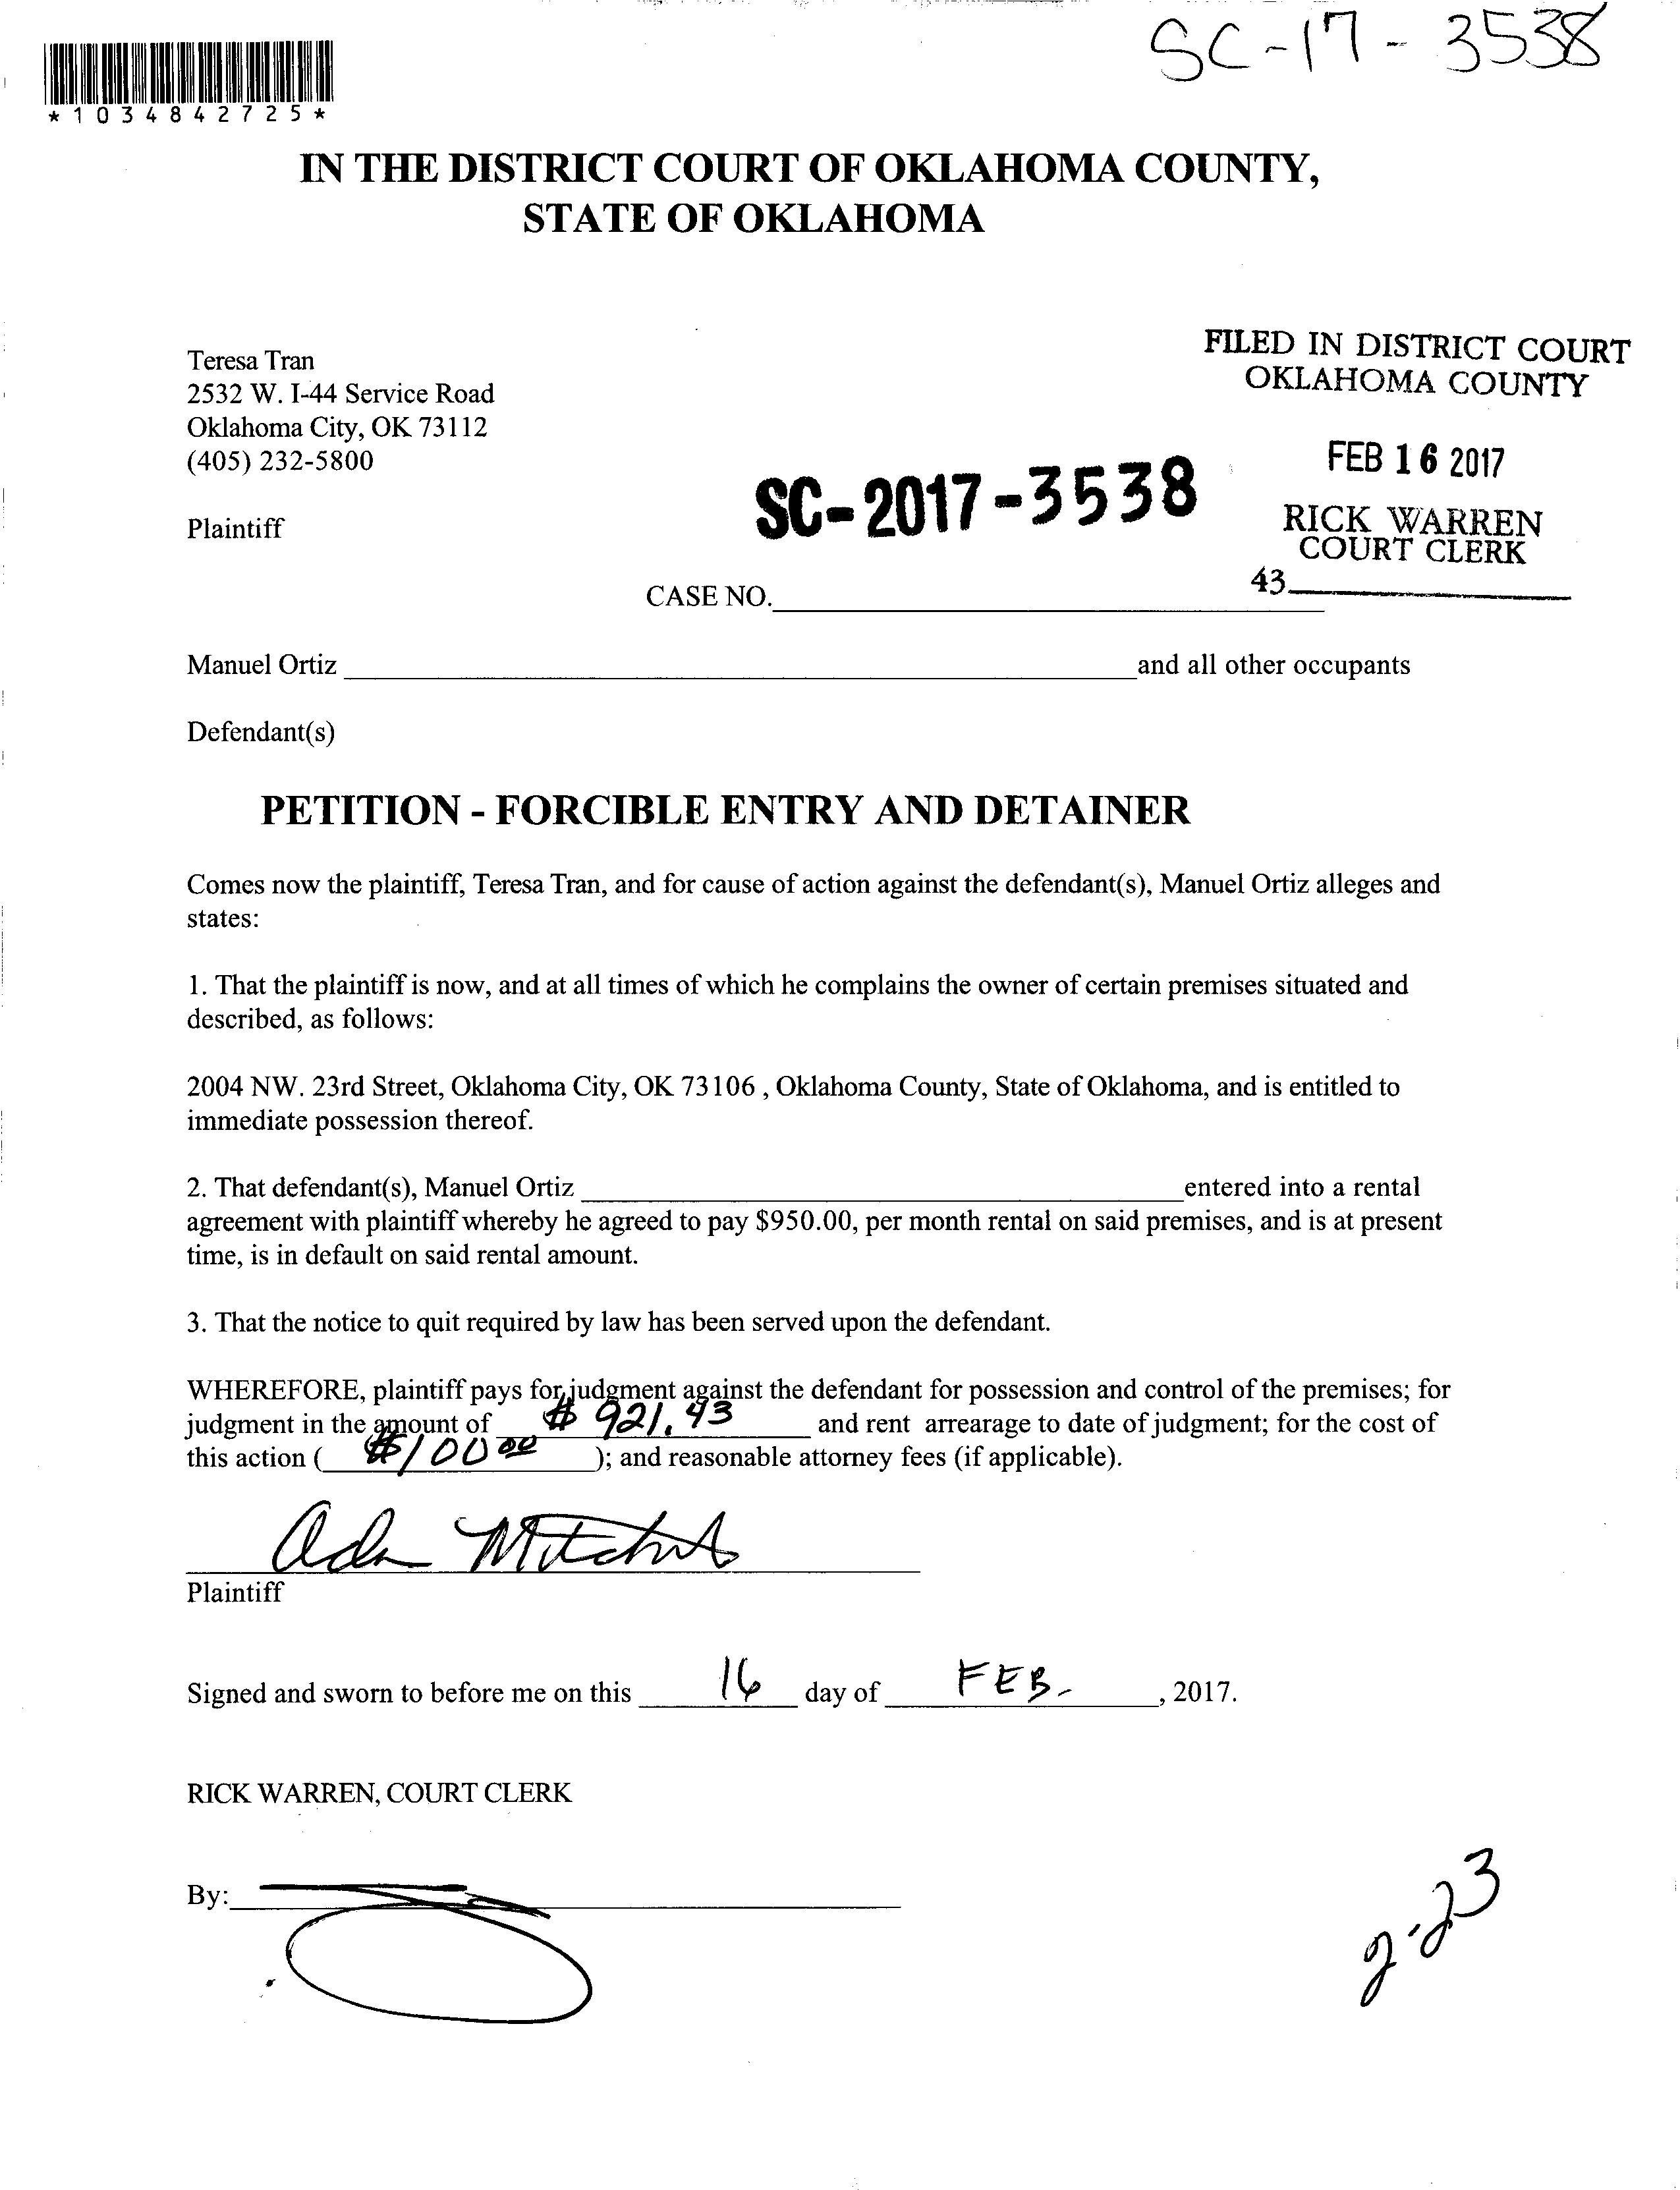 SC-17-3538
*1034842725*
IN THE DISTRICT COURT OF OKLAHOMA COUNTY,
STATE OF OKLAHOMA
FILED IN DISTRICT COURT
OKLAHOMA COUNTY
Teresa Tran
2532 W. I-44 Service Road
Oklahoma City, OK 73112
(405) 232-5800
FEB 16 2017
SC-2017-3538
Plaintiff
RICK WARREN
COURT CLERK
43
CASE NO.
Manuel Ortiz and all other occupants
Defendant(s)
PETITION - FORCIBLE ENTRY AND DETAINER
Comes now the plaintiff, Teresa Tran, and for cause of action against the defendant(s), Manuel Ortiz alleges and
states:
1. That the plaintiff is now, and at all times of which he complains the owner of certain premises situated and
described, as follows:
2004 NW. 23rd Street, Oklahoma City, OK 73106 , Oklahoma County, State of Oklahoma, and is entitled to
immediate possession thereof.
2. That defendant(s), Manuel Ortiz entered into a rental
agreement with plaintiff whereby he agreed to pay $950.00, per month rental on said premises, and is at present
time, is in default on said rental amount.
3. That the notice to quit required by law has been served upon the defendant.
WHEREFORE, plaintiff pays for judgment against the defendant for possession and control of the premises; for
judgment in the amount of $ 921.43 and rent arrearage to date of judgment; for the cost of
this action ( $100 00 ); and reasonable attorney fees (if applicable).
Plaintiff
Signed and sworn to before me on this 16 day of FEB. , 2017.
RICK WARREN, COURT CLERK
By:
2-23